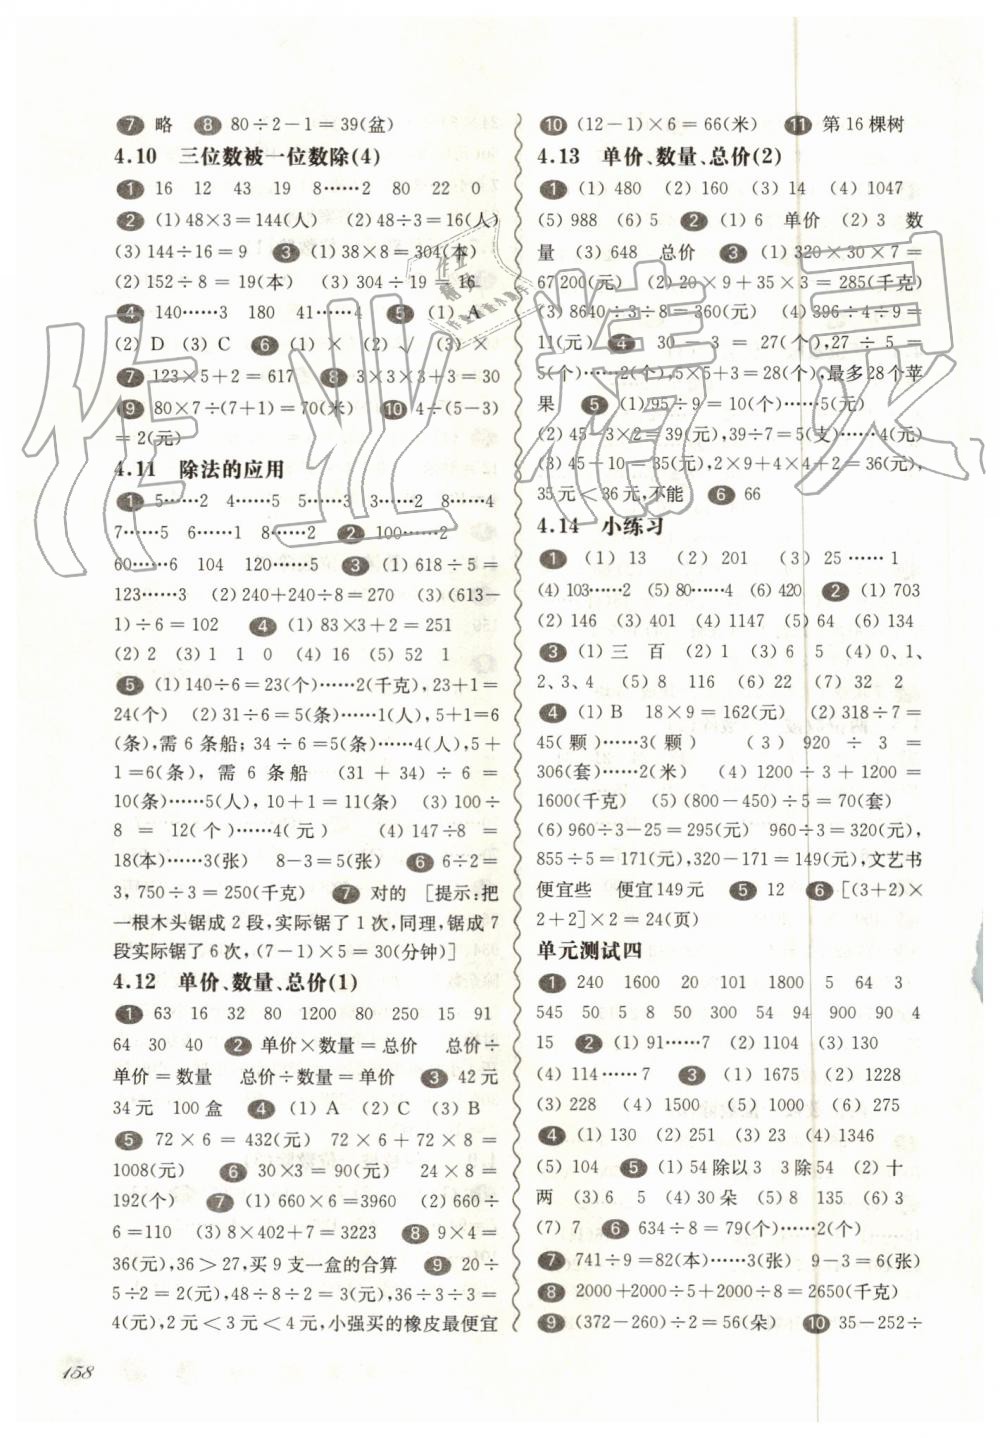 7 略 8 80÷2-1=39(盆)
4.10 三位数被一位数除(4)
1 16 12 43 19 8……2 80 22 0
2 (1) 48×3=144(人) (2) 48÷3=16(人)
(3) 144÷16=9 3 (1) 38×8=304(本)
(2) 152÷8=19(本) (3) 304÷19=16
4 140……3 180 41……4 5 (1) A
(2) D (3) C 6 (1) × (2) √ (3) ×
7 123×5+2=617 8 3×3×3+3=30
9 80×7÷(7+1)=70(米) 10 4÷(5-3)
=2(元)
4.11 除法的应用
1 5……2 4……5 5……3 3……2 8……4
7……5 6……1 8……2 2 100……2
60……6 104 120……5 3 (1) 618÷5=
123……3 (2) 240+240÷8=270 (3) (613-
1)÷6=102 4 (1) 83×3+2=251
(2) 2 (3) 1 1 0 (4) 16 (5) 52 1
5 (1) 140÷6=23(个)……2(千克),23+1=
24(个) (2) 31÷6=5(条)……1(人),5+1=6
(条),需 6 条船;34÷6=5(条)……4(人),5+
1=6(条),需 6 条船 (31+34)÷6=
10(条)……5(人),10+1=11(条) (3) 100÷
8=12(个)……4(元) (4) 147÷8=
18(本)……3(张) 8-3=5(张) 6 6÷2=
3,750÷3=250(千克) 7 对的 [提示:把
一根木头锯成 2 段,实际锯了 1 次,同理,锯成 7
段实际锯了 6 次,(7-1)×5=30(分钟)]
4.12 单价、数量、总价(1)
1 63 16 32 80 1200 80 250 15 91
64 30 40 2 单价×数量=总价 总价÷
单价=数量 总价÷数量=单价 3 42 元
34 元 100 盒 4 (1) A (2) C (3) B
5 72×6=432(元) 72×6+72×8=
1008(元) 6 30×3=90(元) 24×8=
192(个) 7 (1) 660×6=3960 (2) 660÷
6=110 (3) 8×402+7=3223 8 9×4=
36(元),36>27,买 9 支一盒的合算 9 20÷
5÷2=2(元),48÷8÷2=3(元),36÷3÷3=
4(元),2 元<3 元<4 元,小强买的橡皮最便宜
10 (12-1)×6=66(米) 11 第 16 棵树
4.13 单价、数量、总价(2)
1 (1) 480 (2) 160 (3) 14 (4) 1047
(5) 988 (6) 5 2 (1) 6 单价 (2) 3 数
量 (3) 648 总价 3 (1) 320×30×7=
67200(元) (2) 20×9+35×3=285(千克)
(3) 8640÷3÷8=360(元) (4) 396÷4÷9=
11(元) 4 30-3=27(个),27÷5=
5(个)……2(个),5×5+3=28(个),最多 28 个苹
果 5 (1) 95÷9=10(个)……5(元)
(2) 45-3×2=39(元),39÷7=5(支)……4(元)
(3) 45-10=35(元),2×9+4×2+5×2=36(元),
35 元<36 元,不能 6 66
4.14 小练习
1 (1) 13 (2) 201 (3) 25……1
(4) 103……2 (5) 80……4 (6) 420 2 (1) 703
(2) 146 (3) 401 (4) 1147 (5) 64 (6) 134
3 (1) 三 百 (2) 1 (3) 6 5 (4) 0、1、
2、3、4 (5) 8 116 (6) 22 (7) 32 2
4 (1) B 18×9=162(元) (2) 318÷7=
45(颗)……3(颗) (3) 920÷3=
306(套)……2(米) (4) 1200÷3+1200=
1600(千克) (5) (800-450)÷5=70(套)
(6) 960÷3-25=295(元) 960÷3=320(元),
855÷5=171(元),320-171=149(元),文艺书
便宜些 便宜149元 5 12 6 [(3+2)×
2+2]×2=24(页)
单元测试四
1 240 1600 20 101 1800 5 64 3
545 50 5 8 50 300 54 94 900 90 4
15 2 (1) 91……7 (2) 1104 (3) 130
(4) 114……7 3 (1) 1675 (2) 1228
(3) 228 (4) 1500 (5) 1000 (6) 275
4 (1) 130 (2) 251 (3) 23 (4) 1346
(5) 104 5 (1) 54 除以 3 3 除 54 (2) 十
两 (3) 6 5 (4) 30 朵 (5) 8 135 (6) 3
(7) 7 6 634÷8=79(个)……2(个)
7 741÷9=82(本)……3(张) 9-3=6(张)
8 2000+2000÷5+2000÷8=2650(千克)
9 (372-260)÷2=56(朵) 10 35-252÷
158
作业精灵